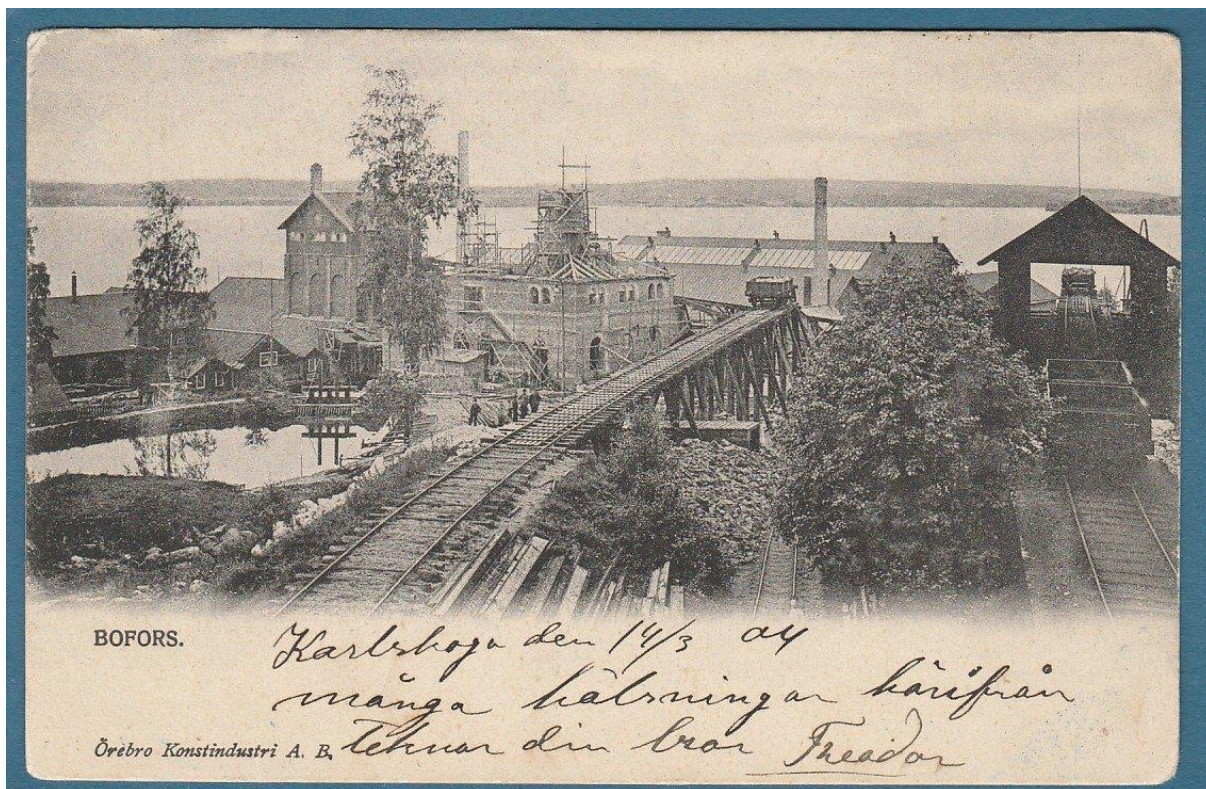 BOFORS.
Karlskoga den 14/3 04
många hälsningar härifrån
Teknar din bror Theodor
Örebro Konstindustri A. B.